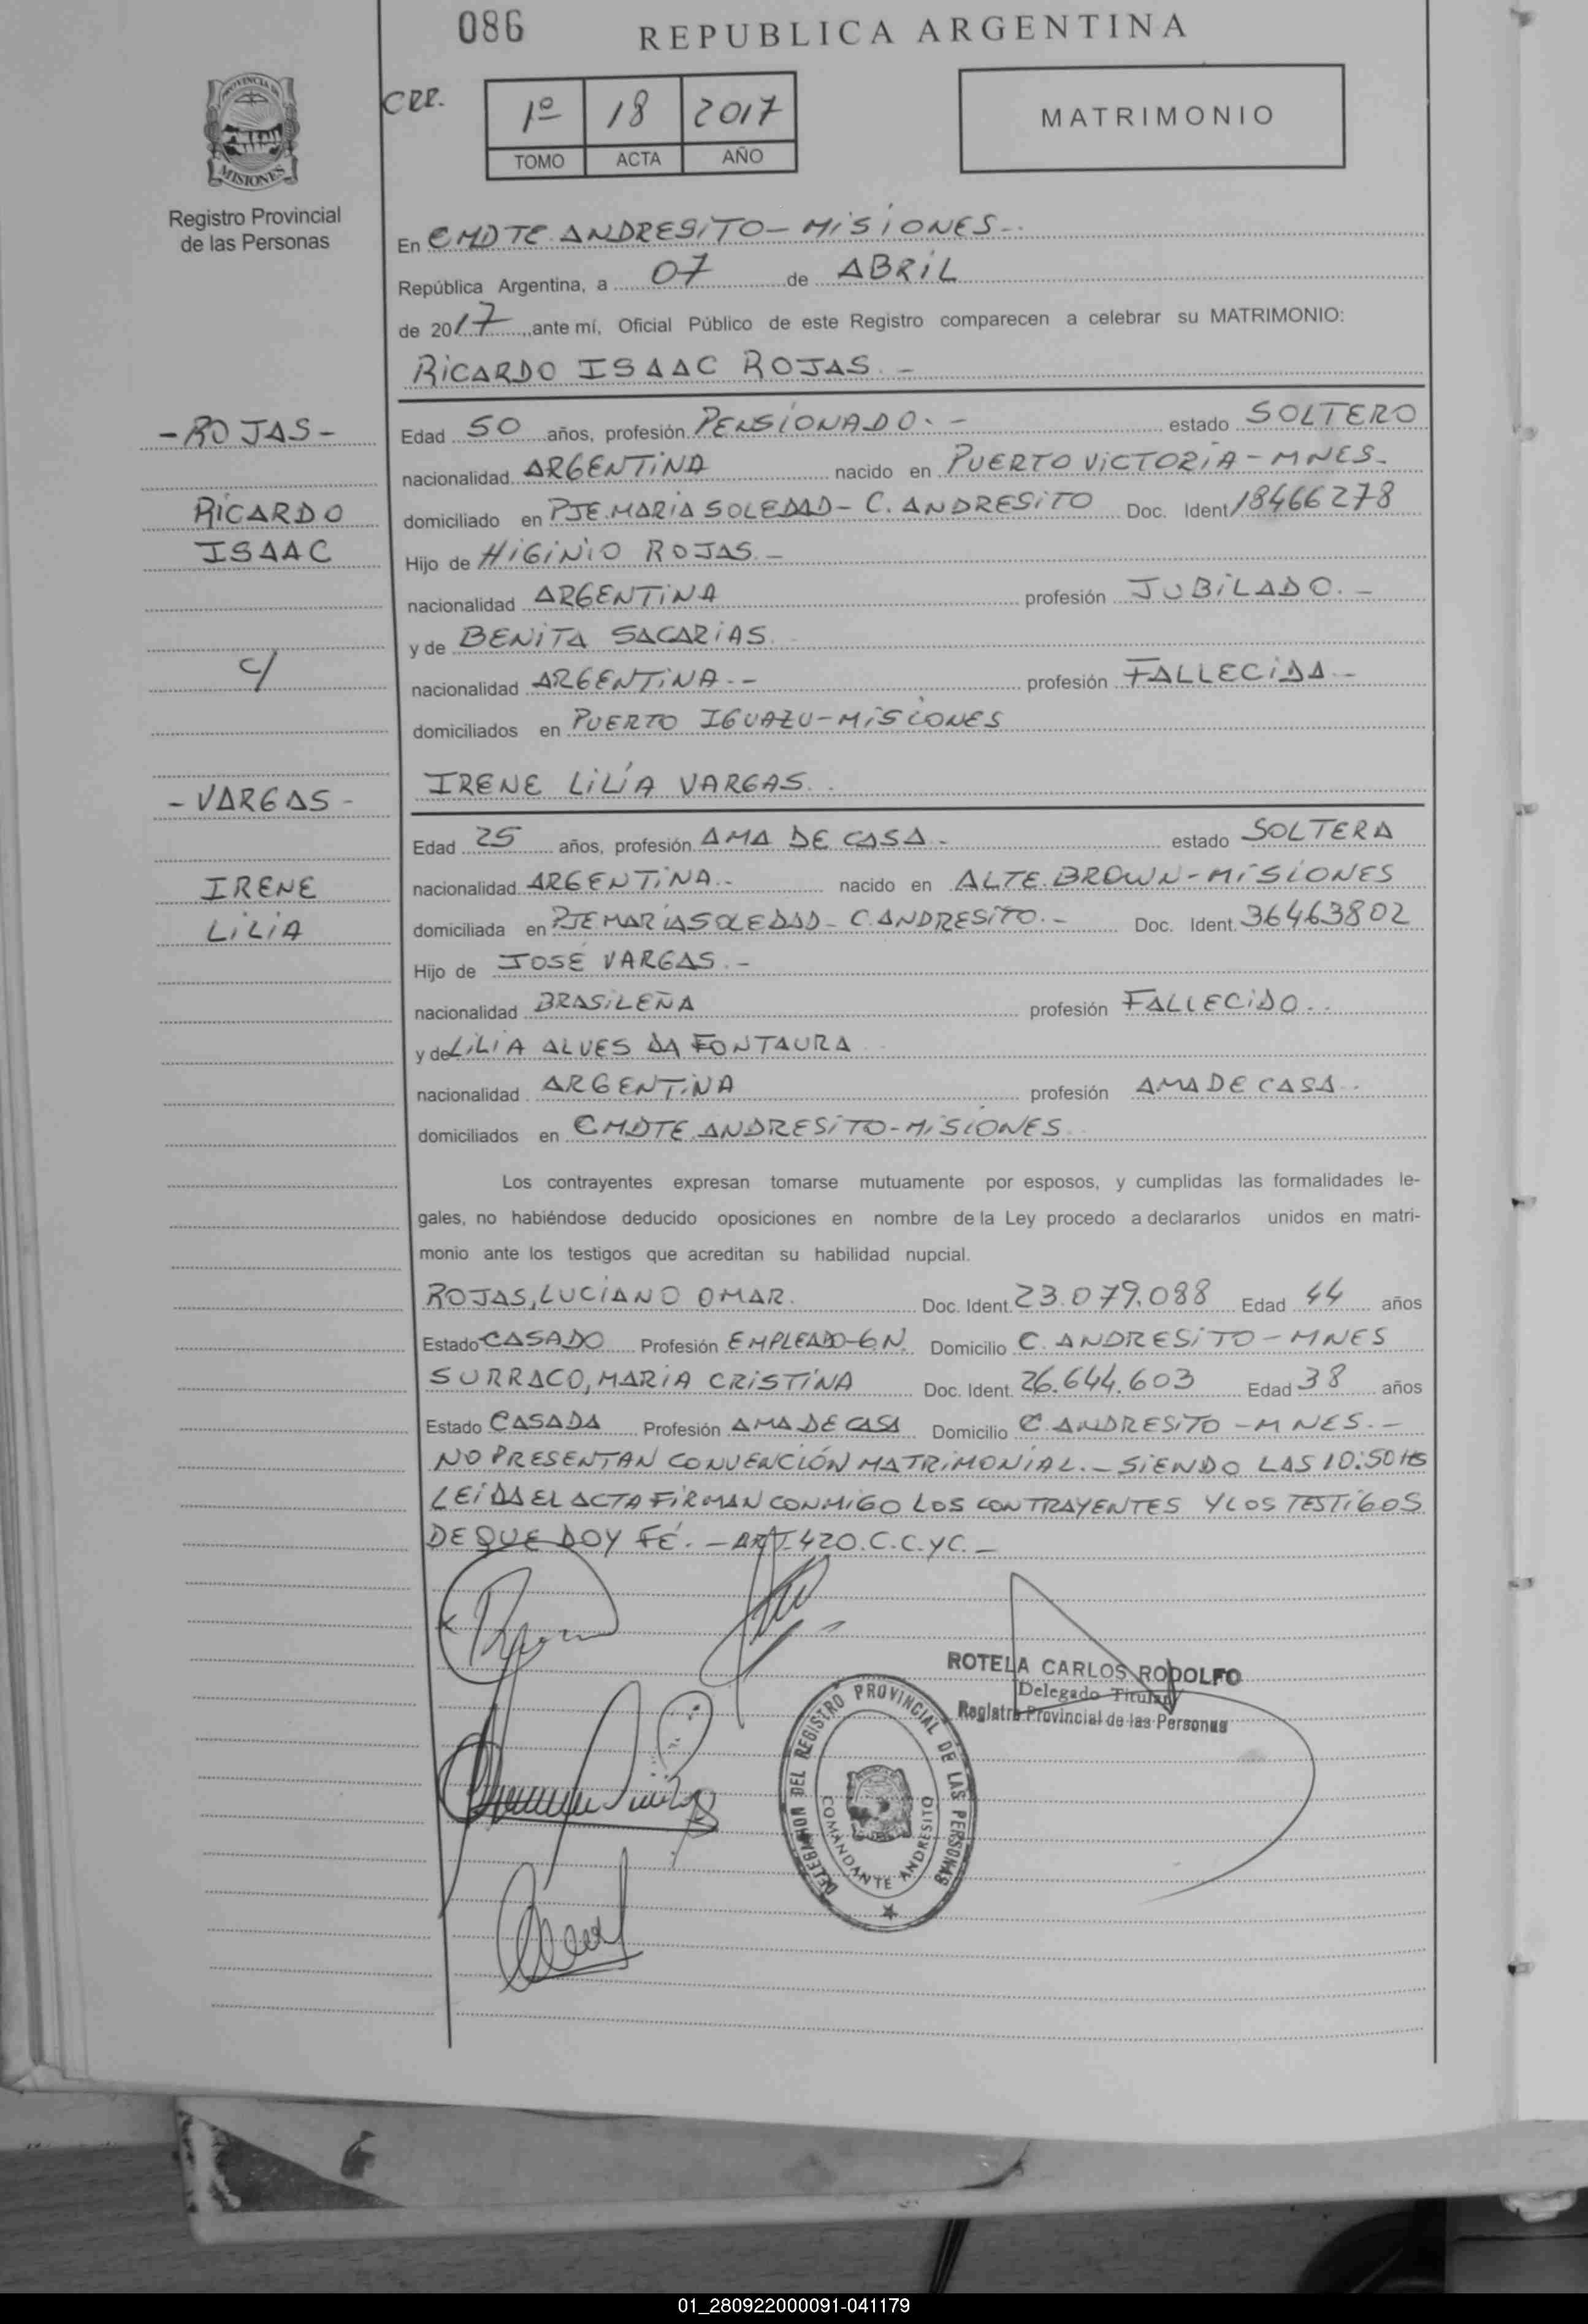 086
REPUBLICA ARGENTINA
PROVINCIA DE
MISIONES
Registro Provincial
de las Personas
1º 18 2017
TOMO ACTA AÑO
MATRIMONIO
En CMDTE ANDRESITO - MISIONES -
República Argentina, a 07 de ABRIL
de 2017, ante mí, Oficial Público de este Registro comparecen a celebrar su MATRIMONIO:
RICARDO ISAAC ROJAS. -
- ROJAS -
Edad 50 años, profesión PENSIONADO. - estado SOLTERO
nacionalidad ARGENTINA nacido en PUERTO VICTORIA - MNES -
RICARDO
domiciliado en PJE. MARIA SOLEDAD - C. ANDRESITO Doc. Ident 18466278
ISAAC
Hijo de HIGINIO ROJAS. -
nacionalidad ARGENTINA profesión JUBILADO. -
y de BENITA SACARIAS.
C/
nacionalidad ARGENTINA. - profesión FALLECIDA -
domiciliados en PUERTO IGUAZU - MISIONES
- VARGAS -
IRENE LILIA VARGAS.
Edad 25 años, profesión AMA DE CASA. estado SOLTERA
IRENE
nacionalidad ARGENTINA. - nacido en ALTE. BROWN - MISIONES
LILIA
domiciliada en PJE MARIA SOLEDAD - C. ANDRESITO. - Doc. Ident. 36463802
Hijo de JOSÉ VARGAS. -
nacionalidad BRASILEÑA profesión FALLECIDO.
y de LILIA ALVES DA FONTAURA
nacionalidad ARGENTINA profesión AMA DE CASA.
domiciliados en CMDTE. ANDRESITO - MISIONES
Los contrayentes expresan tomarse mutuamente por esposos, y cumplidas las formalidades le-
gales, no habiéndose deducido oposiciones en nombre de la Ley procedo a declararlos unidos en matri-
monio ante los testigos que acreditan su habilidad nupcial.
ROJAS, LUCIANO OMAR. Doc. Ident 23.079.088 Edad 44 años
Estado CASADO Profesión EMPLEADO-G N. Domicilio C. ANDRESITO - MNES
SURRACO, MARIA CRISTINA Doc. Ident. 26.644.603 Edad 38 años
Estado CASADA Profesión AMA DE CASA Domicilio C. ANDRESITO - MNES. -
NO PRESENTAN CONVENCIÓN MATRIMONIAL. - SIENDO LAS 10:50 HS
LEIDA EL ACTA FIRMAN CONMIGO LOS CONTRAYENTES Y LOS TESTIGOS
DE QUE DOY FÉ. - ART. 420. C.C.YC. -
ROTELA CARLOS RODOLFO
Delegado Titular
Registro Provincial de las Personas
DELEGACION DEL REGISTRO PROVINCIAL DE LAS PERSONAS
COMANDANTE ANDRESITO
01_280922000091-041179